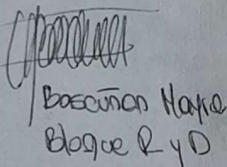 Boscuñan Mayra
Bloque R y D